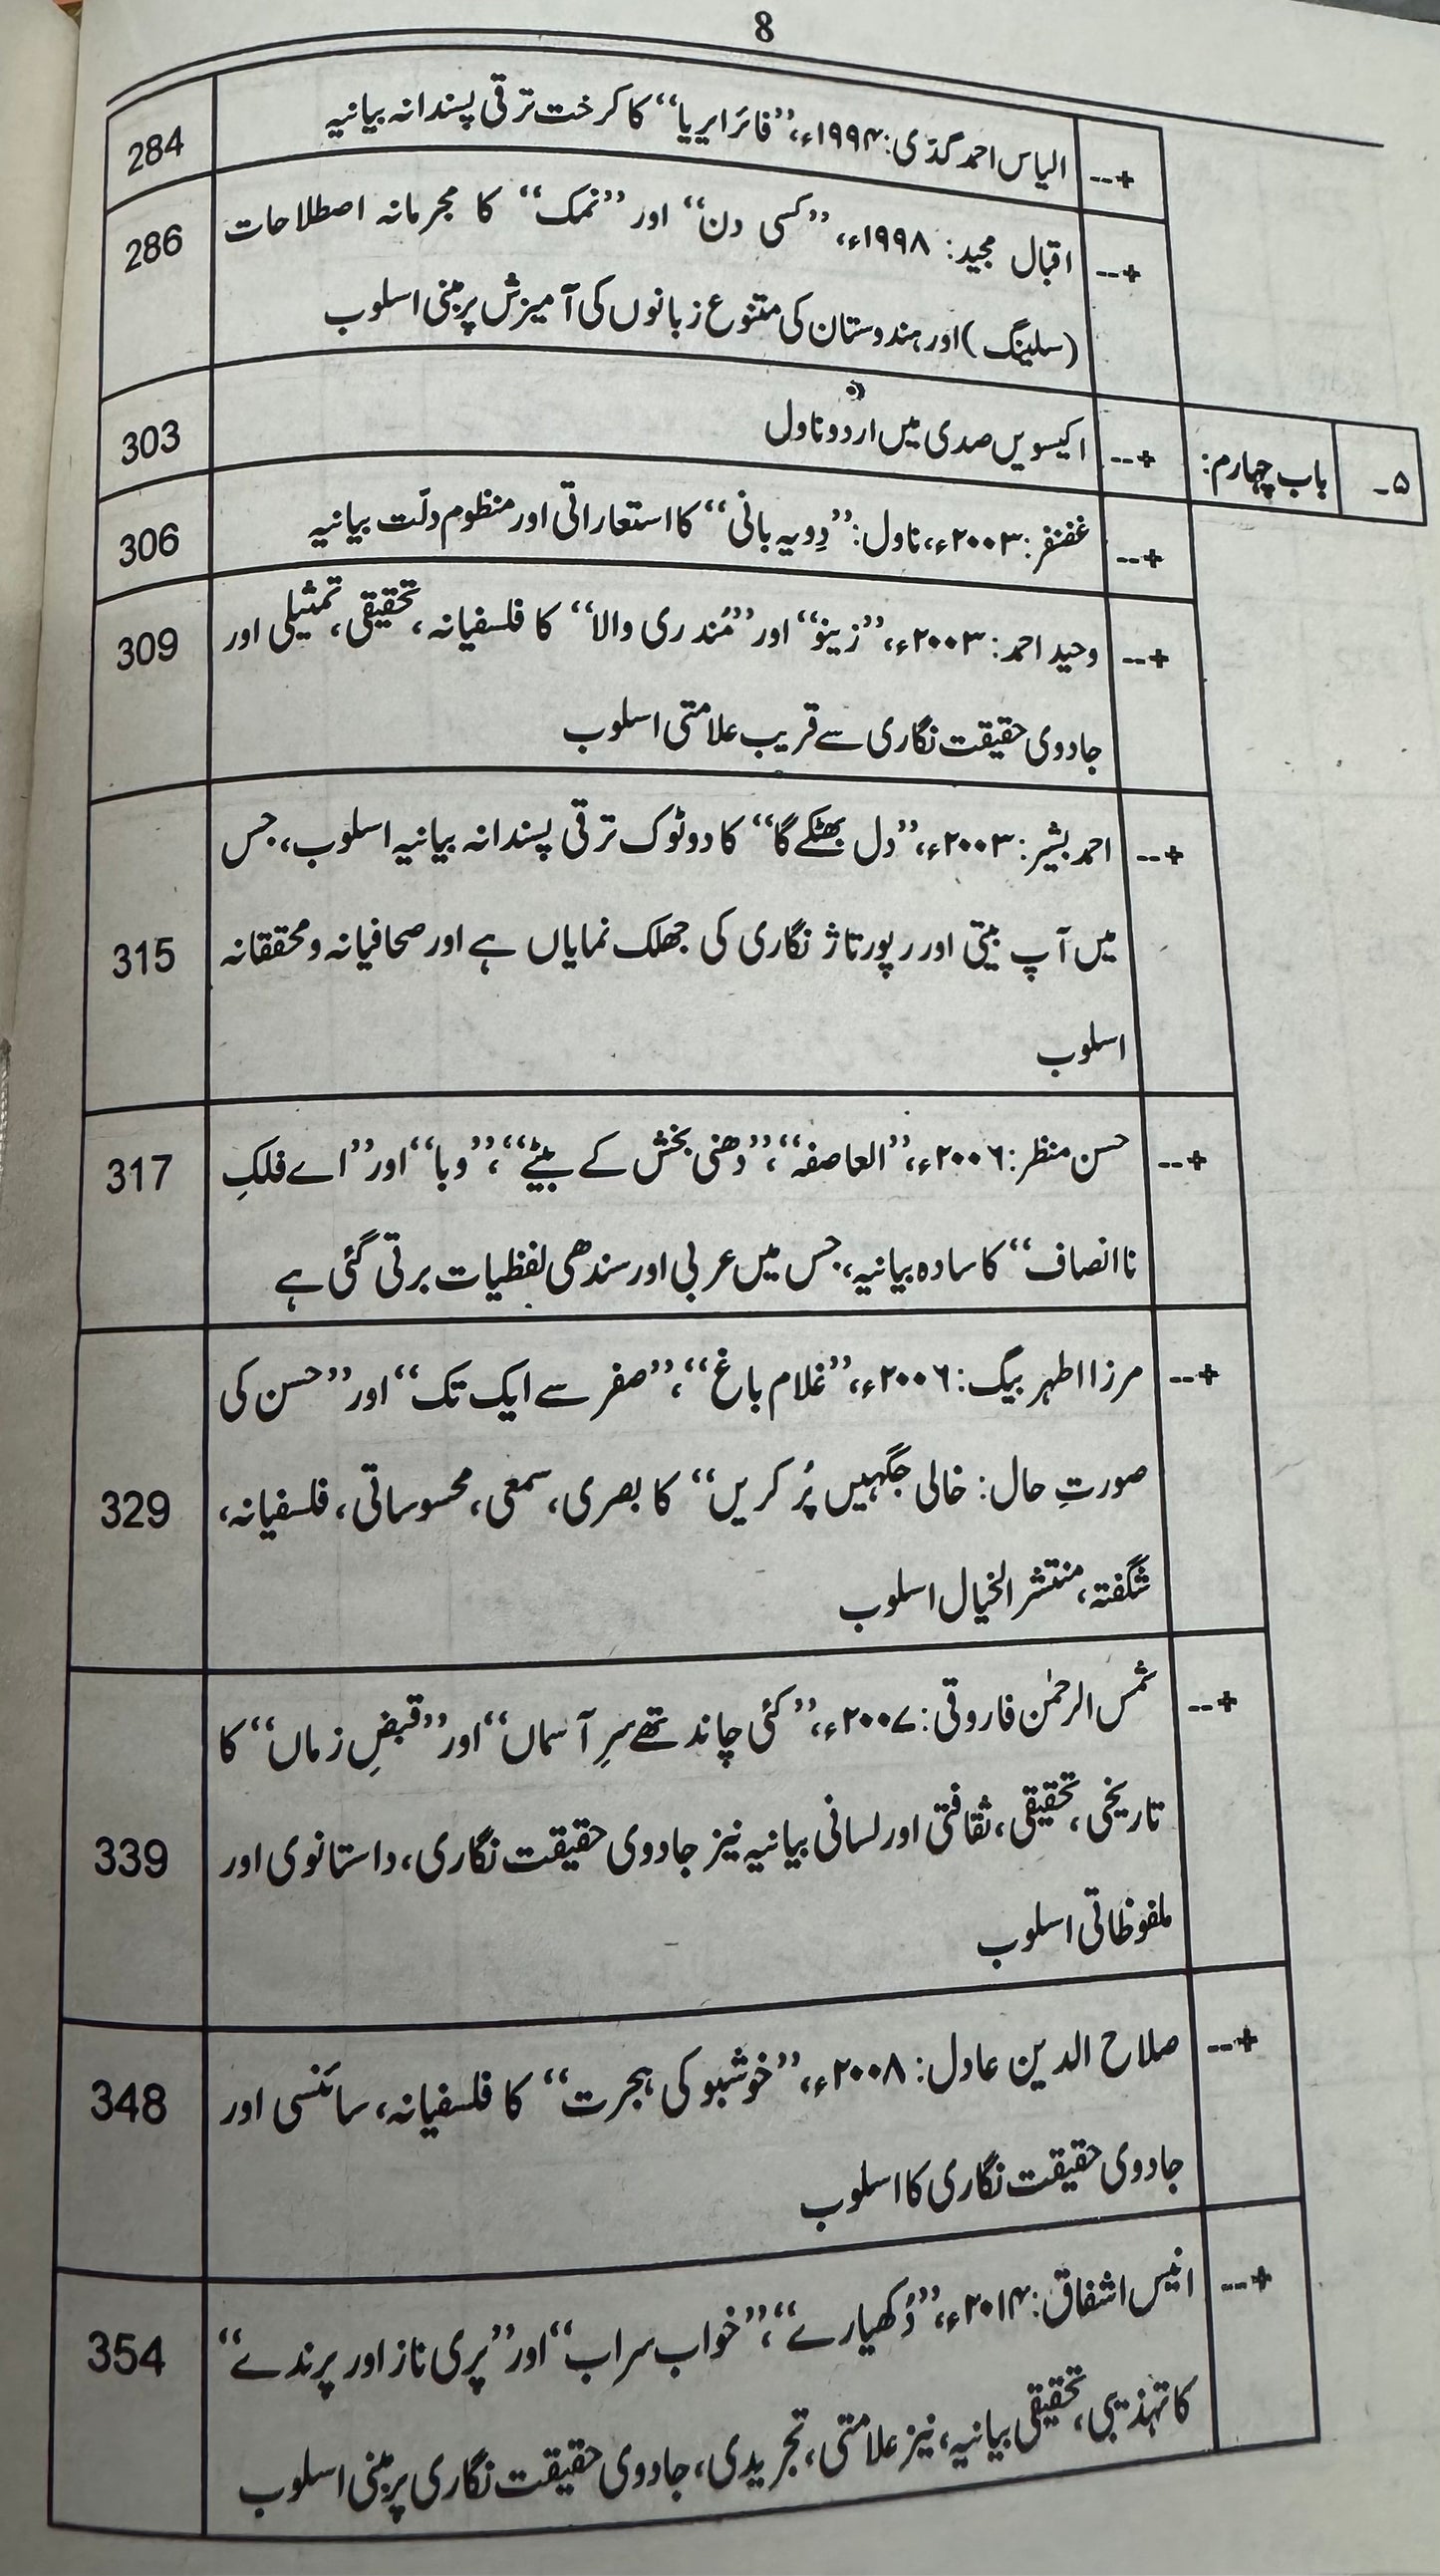 8
+-- الیاس احمد گدّی: ۱۹۹۴ء، ”فائر ایریا“ کا کرخت ترقی پسندانہ بیانیہ 284
+-- اقبال مجید: ۱۹۹۸ء، ”کسی دن“ اور ”نمک“ کا مجرمانہ اصطلاحات 286
(سلینگ) اور ہندوستان کی متنوع زبانوں کی آمیزش پر مبنی اسلوب
۵۔ باب چہارم: +-- اکیسویں صدی میں اردو ناول 303
+-- غضنفر: ۲۰۰۳ء، ناول: ”دِویہ بانی“ کا استعاراتی اور منظوم دلّت بیانیہ 306
+-- وحید احمد: ۲۰۰۳ء، ”زینو“ اور ”مُندری والا“ کا فلسفیانہ، تحقیقی، تمثیلی اور 309
جادوی حقیقت نگاری سے قریب علامتی اسلوب
+-- احمد بشیر: ۲۰۰۳ء، ”دل بھٹکے گا“ کا دوٹوک ترقی پسندانہ بیانیہ اسلوب، جس
میں آپ بیتی اور رپورتاژ نگاری کی جھلک نمایاں ہے اور صحافیانہ و محققانہ 315
اسلوب
+-- حسن منظر: ۲۰۰۶ء، ”العاصفہ“، ”دھنی بخش کے بیٹے“، ”وبا“ اور ”اے فلکِ 317
ناانصاف“ کا سادہ بیانیہ، جس میں عربی اور سندھی لفظیات برتی گئی ہے
+-- مرزا اطہر بیگ: ۲۰۰۶ء، ”غلام باغ“، ”صفر سے ایک تک“ اور ”حسن کی
صورتِ حال: خالی جگہیں پُر کریں“ کا بصری، سمعی، محسوساتی، فلسفیانہ، 329
شگفتہ، منتشر الخیال اسلوب
+-- شمس الرحمٰن فاروقی: ۲۰۰۷ء، ”کئی چاند تھے سرِ آسماں“ اور ”قبضِ زماں“ کا
تاریخی، تحقیقی، ثقافتی اور لسانی بیانیہ نیز جادوی حقیقت نگاری، داستانوی اور 339
ملفوظاتی اسلوب
+-- صلاح الدین عادل: ۲۰۰۸ء، ”خوشبو کی ہجرت“ کا فلسفیانہ، سائنسی اور 348
جادوی حقیقت نگاری کا اسلوب
+-- انیس اشفاق: ۲۰۱۴ء، ”دُکھیارے“، ”خواب سراب“ اور ”پری ناز اور پرندے“ 354
کا تہذیبی، تحقیقی بیانیہ، نیز علامتی، تجریدی، جادوی حقیقت نگاری پر مبنی اسلوب